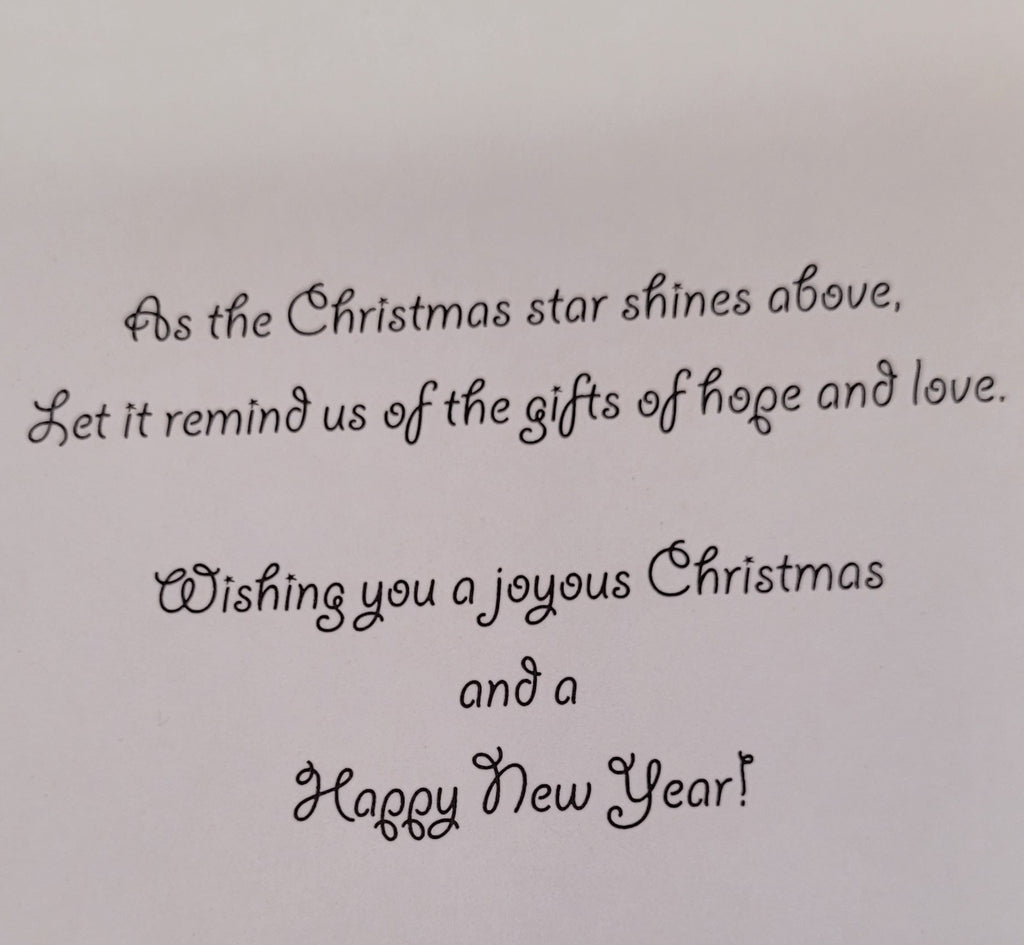 As the Christmas star shines above,
Let it remind us of the gifts of hope and love.
Wishing you a joyous Christmas
and a
Happy New Year!